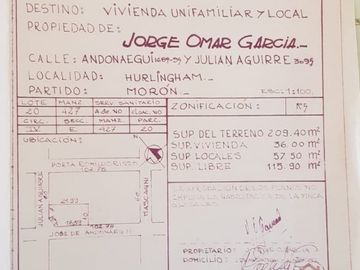 DESTINO: VIVIENDA UNIFAMILIAR Y LOCAL
PROPIEDAD DE:
JORGE OMAR GARCIA._
CALLE: ANDONAEGUI Y JULIAN AGUIRRE
LOCALIDAD: HURLINGHAM._
PARTIDO: MORÓN._ ESC: 1:100.
LOTE MANZ SERV. SANITARIO
20 427
CIRC. SECC. MANZ. PARC.
IV E 427 20
ZONIFICACIÓN: R5
UBICACIÓN:
PORTA
JULIAN AGUIRRE
MASCAGNI
JOSE DE ANDONAEGUI
SUP. DEL TERRENO 209.40 m²
SUP. VIVIENDA 36.00 m²
SUP. LOCALES 57.50 m²
SUP. LIBRE 115.90 m²
LA APROBACION DE LOS PLANOS NO
PROPIETARIO:
DOMICILIO: